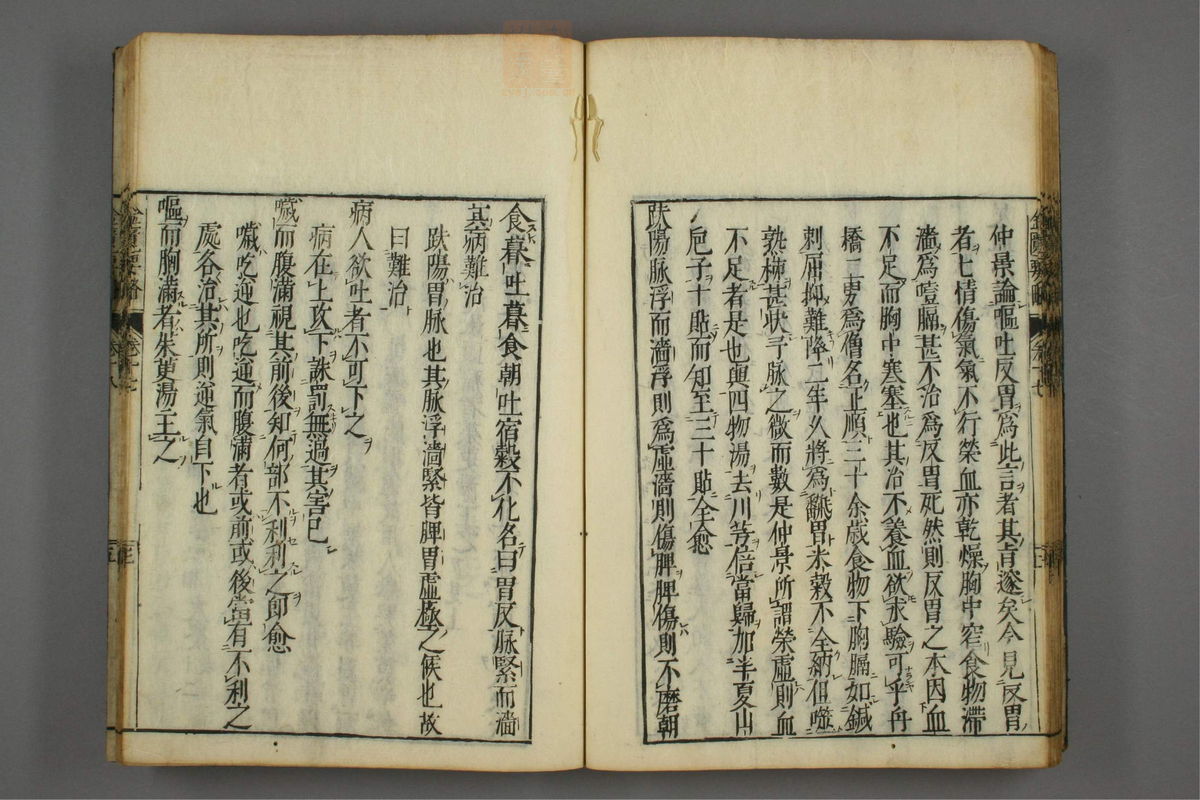 仲景論嘔吐反胃爲此言者其肯邃矣今見反胃
者七情傷氣氣不行榮血亦乾燥胸中窄食物滯
濇爲噎膈甚不治爲反胃死然則反胃之本因血
不足而胸中寒塞也其治不養血欲求驗可乎丹
橋二男爲僧名正順三十余歳食物下胸膈如鍼
刺屈抑難降二年久將爲翻胃米穀不全納但噬
熟柿甚状子脉之微而數是仲景所謂榮虛則血
不足者是也與四物湯去川芎倍當歸加半夏山
巵子十貼而知至三十貼全愈
趺陽脉浮而濇浮則爲虛濇則傷脾脾傷則不磨朝
食暮吐暮食朝吐宿穀不化名曰胃反脉緊而濇
其病難治
趺陽胃脉也其脉浮濇緊皆脾胃虛極之候也故
曰難治
病人欲吐者不可下之
病在上攻下誅罰無過其害已
噦而腹滿視其前後知何部不利利之即愈
噦吃逆也吃逆而腹滿者或前或後當有不利之
處各治其所則逆氣自下也
嘔而胸滿者茱萸湯主之